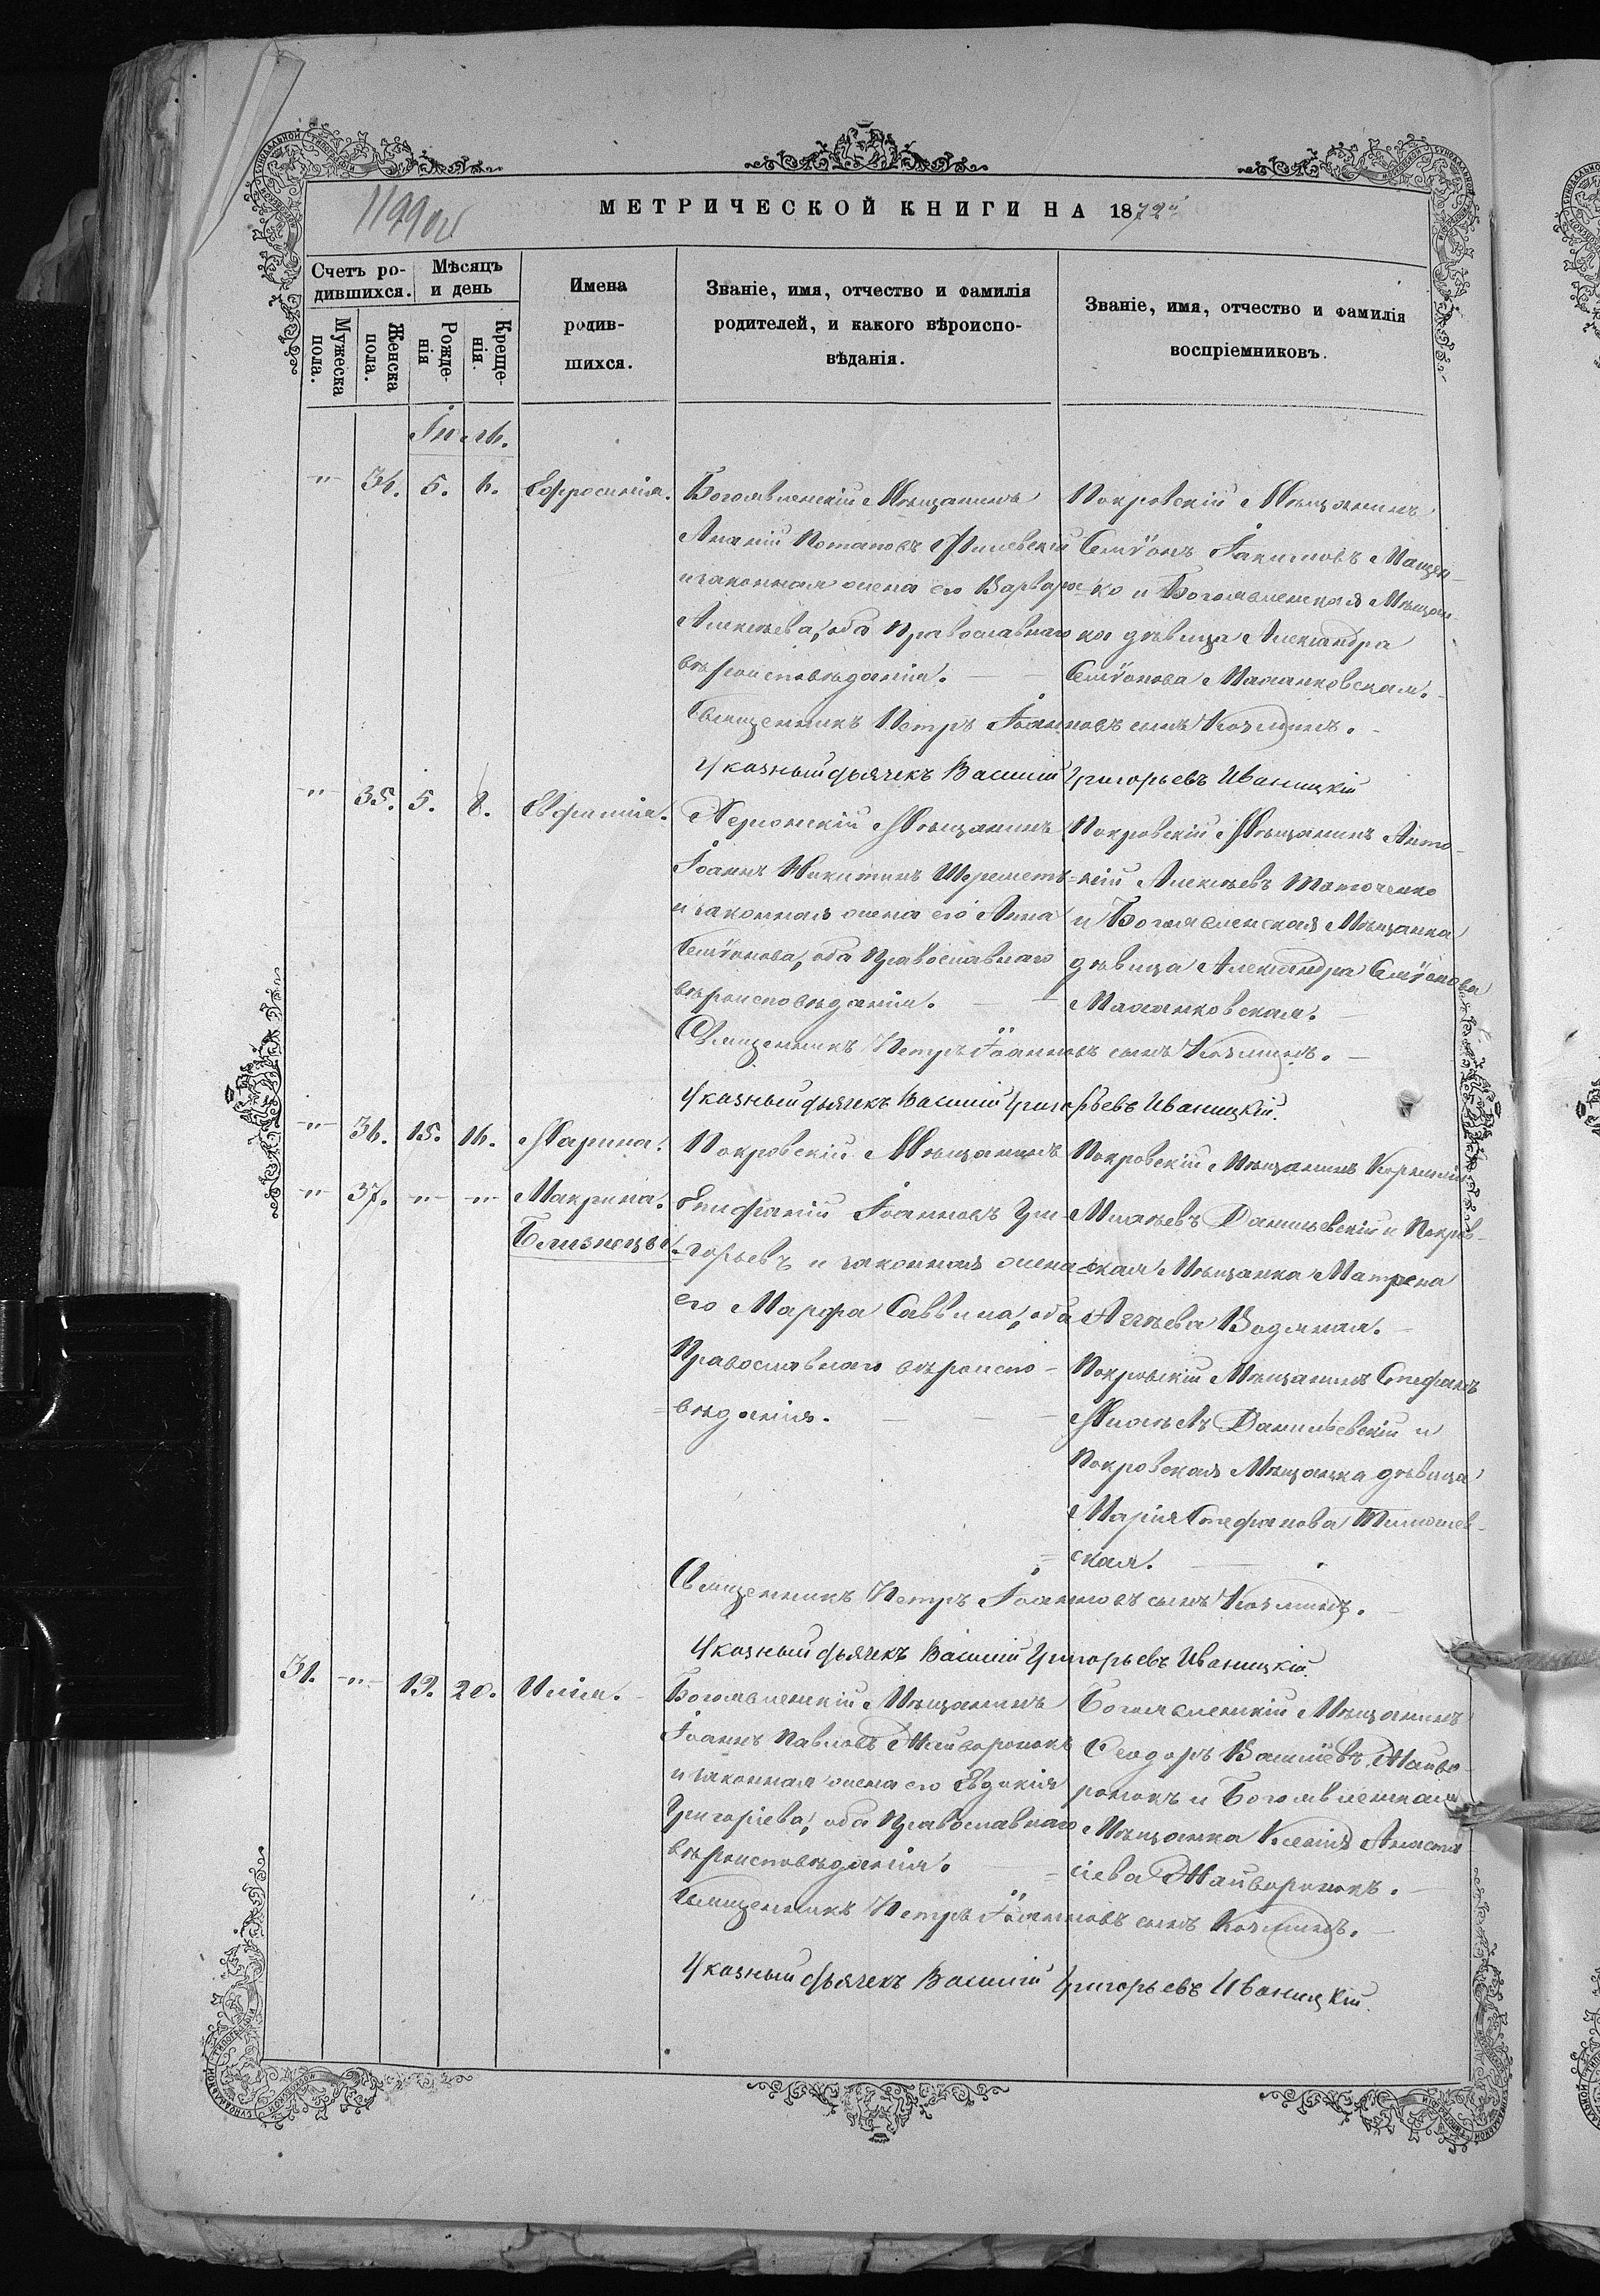 МЕТРИЧЕСКОЙ КНИГИ НА 1872й
1199об
Счетъ ро-
дившихся.
Мѣсяцъ
и день
Мужеска
пола.
Женска
пола.
Рожде-
нія
Креще-
нія.
Имена
родив-
шихся.
Званіе, имя, отчество и фамилія
родителей, и какого вѣроиспо-
вѣданія.
Званіе, имя, отчество и фамилія
воспріемниковъ.
Іюль.
-"- 34. 5. 6. Ефросинія. Богоявленскій Мѣщанинъ Покровскій Мѣщанинъ
Ананій Потаповъ Сѵмѵонъ Іакимовъ
и законная жена его Варвара ко и Богоявленская Мѣщан
Алексѣева, оба Православнаго ка дѣвица Александра
вѣроисповѣданія. Сѵмѵонова
Священникъ Петръ Іоанновъ сынъ Козминъ.
Указный дьячекъ Василій Григорьевъ Иваницкій
-"- 35. 5. 8. Евфимія. Херсонскій Мѣщанинъ Покровскій Мѣщанинъ Анто-
Іоаннъ Никитинъ Шереметъ ній Алексѣевъ
и законная жена его Анна и Богоявленская Мѣщанка
Сѵмѵонова, оба Православнаго дѣвица Александра Сѵмѵонова
вѣроисповѣданія.
Священникъ Петръ Іоанновъ сынъ Козминъ.
Указный дьячекъ Василій Григорьевъ Иваницкій.
-"- 36. 15. 16. Марина. Покровскій Мѣщанинъ Покровскій Мѣщанинъ Корнилій
-"- 37. -"- -"- Макрина. Епифаній Іоанновъ Гри- Данилевскій и Покров-
Близнецы. горьевъ и законная жена ская Мѣщанка Матрона
его Марфа Саввина, оба Водяная.
Православнаго вѣроиспо- Покровскій Мѣщанинъ Стефанъ
вѣданія. Данилевскій и
Покровская Мѣщанка дѣвица
Марія Стефанова
ская.
Священникъ Петръ Іоанновъ сынъ Козминъ.
Указный дьячекъ Василій Григорьевъ Иваницкій.
31. -"- 19. 20. Илія. Богоявленскій Мѣщанинъ Богоявленскій Мѣщанинъ
Іоаннъ Павловъ Жайворонокъ Ѳеодоръ Василіевъ Жайво-
и законная жена его Евдокія ронокъ и Богоявленская
Григоріева, оба Православнаго Мѣщанка Ксенія Анаста
вѣроисповѣданія. сіева Жайворонокъ.
Священникъ Петръ Іоанновъ сынъ Козминъ.
Указный дьячекъ Василій Григорьевъ Иваницкій.